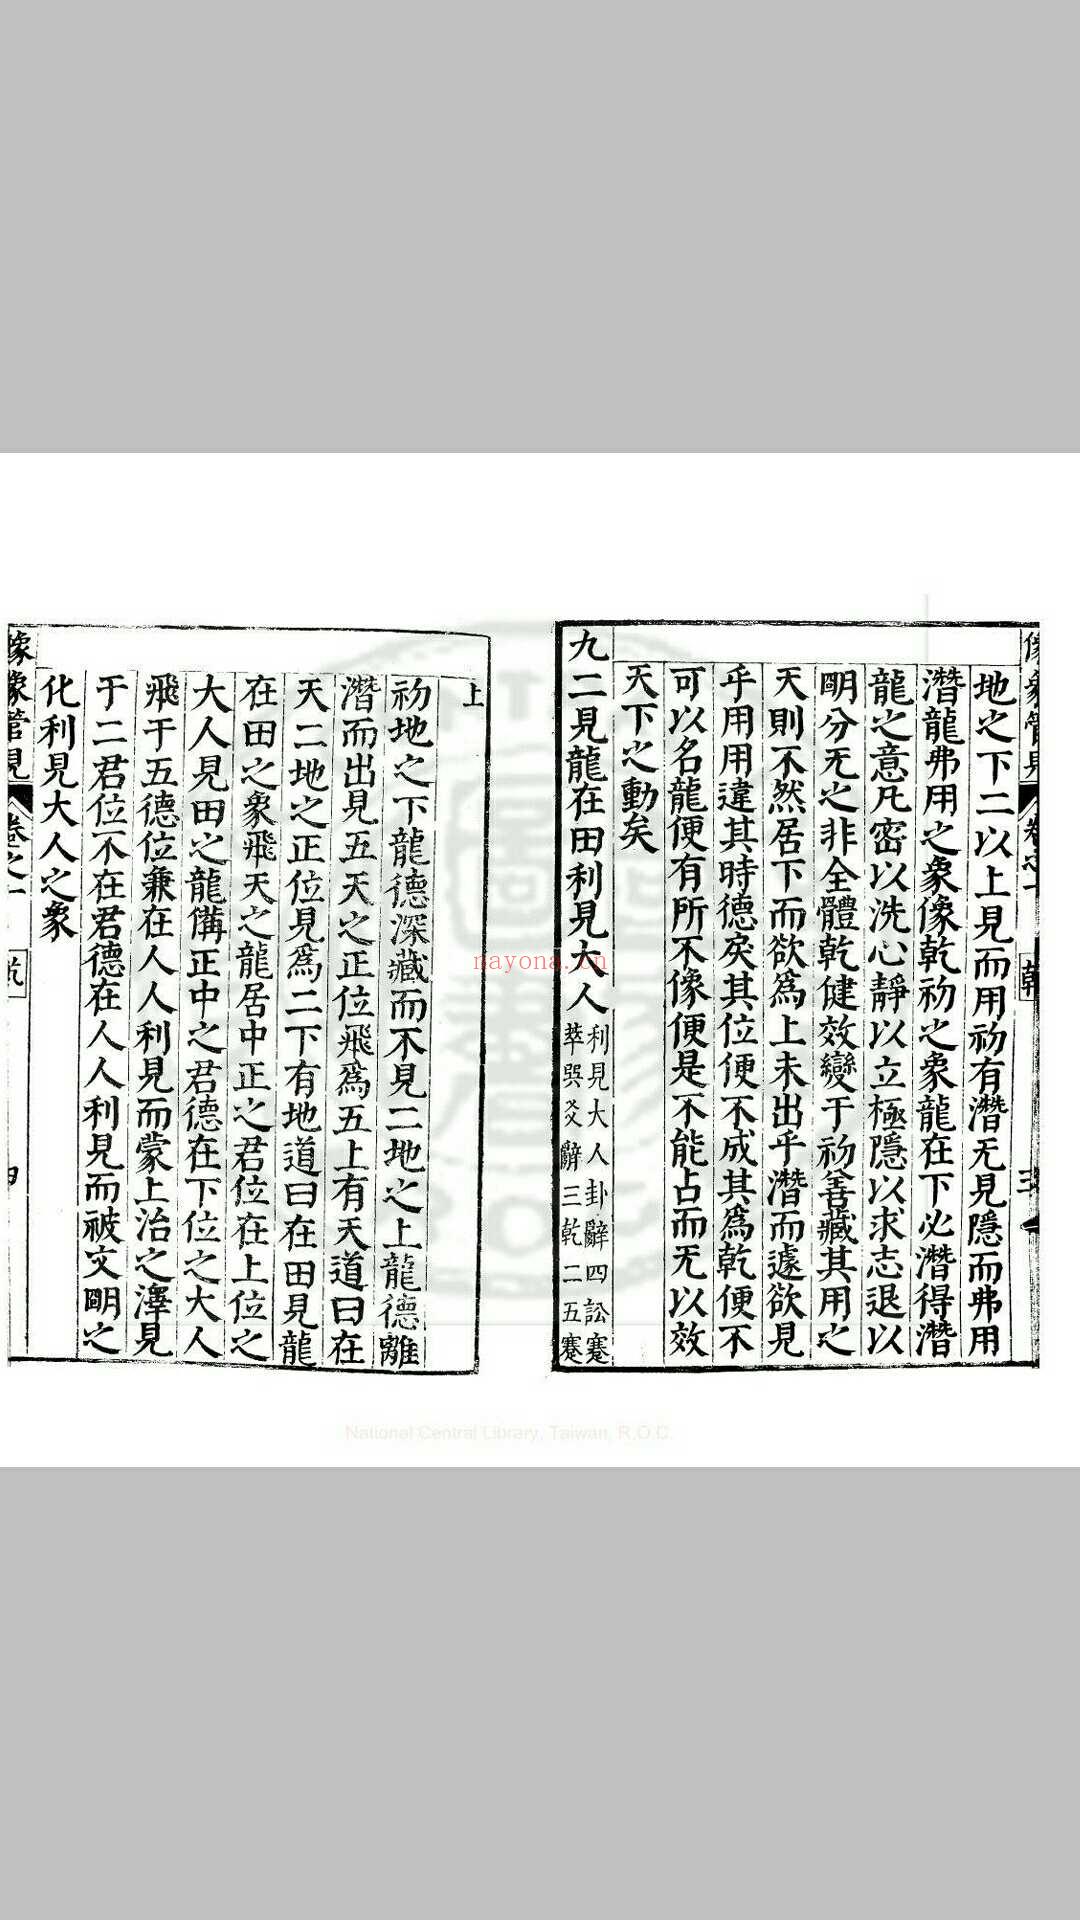 地之下二以上見而用初有潛无見隱而弗用
潛龍弗用之象像乾初之象龍在下必潛得潛
龍之意凡密以洗心靜以立極隱以求志退以
明分无之非全體乾健效變于初善藏其用之
天則不然居下而欲為上未出乎潛而遽欲見
乎用用違其時德戾其位便不成其為乾便不
可以名龍便有所不像便是不能占而无以效
天下之動矣
九二見龍在田利見大人
利見大人卦辭四訟蹇
萃巽爻辭三乾二五蹇
上
初地之下龍德深藏而不見二地之上龍德離
潛而出見五天之正位飛為五上有天道曰在
天二地之正位見為二下有地道曰在田見龍
在田之象飛天之龍居中正之君位在上位之
大人見田之龍備正中之君德在下位之大人
飛于五德位兼在人人利見而蒙上治之澤見
于二君位不在君德在人人利見而被文明之
化利見大人之象
像象管見 卷之一
nayona.cn
National Central Library, Taiwan, R.O.C.